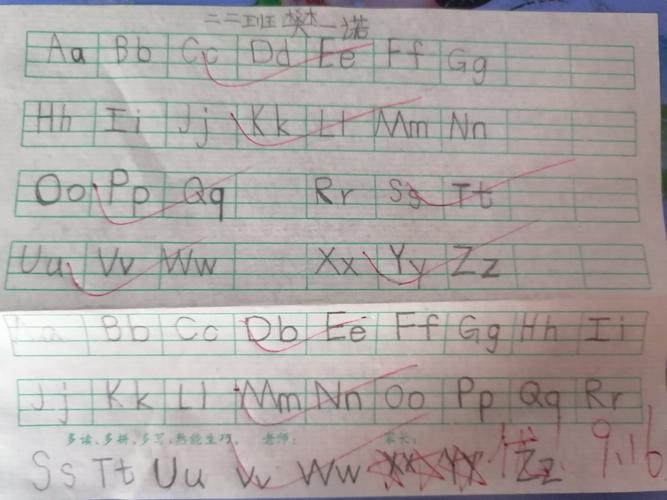 二二班 樊一诺
Aa Bb Cc Dd Ee Ff Gg
Hh Ii Jj Kk Ll Mm Nn
Oo Pp Qq Rr Ss Tt
Uu Vv Ww Xx Yy Zz
Aa Bb Cc Db Ee Ff Gg Hh Ii
Jj Kk Ll Mm Nn Oo Pp Qq Rr
多读、多拼、多写、熟能生巧。 老师: 家长:
Ss Tt Uu Vv Ww Xx Yy Zz 优! 9.16